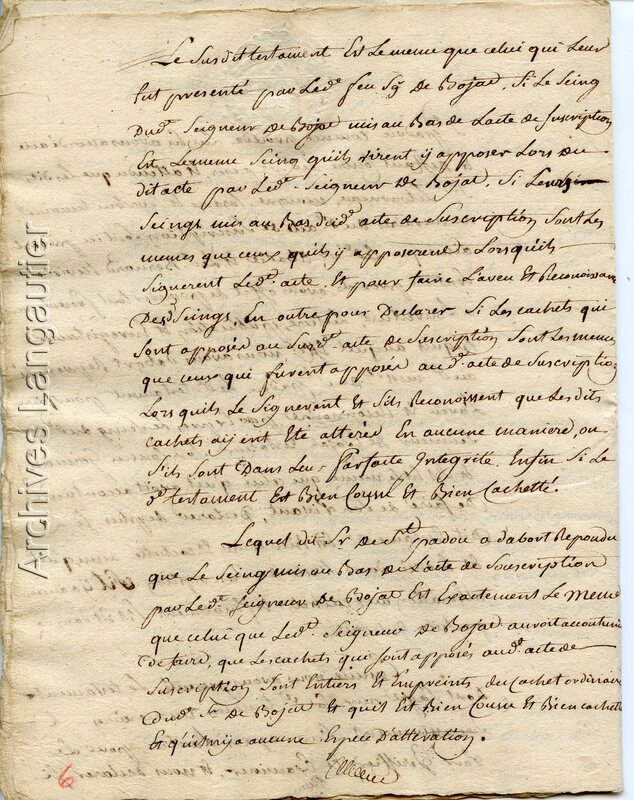 Le Susdit testament Est Le meme que celui qui Leur
fut presenté par Led.t feu Sg.r de Bojat, Si Le Seing
Dud.t Seigneur de Bojat mis au Bas de Lacte de Suscription
Est Le meme Seing quils virent y apposer Lors du
dit acte par Led.t Seigneur de Bojat, Si Leurs
Seings mis au Bas dud.t acte de Suscription Sont Les
memes que ceux quils y apposerent Lorsquils
Signerent Led.t acte, Et pour faire L'aveu Et Reconoissance
Desd.s Seings, En outre pour Declarer Si Les cachets qui
Sont apposés au Susd.t acte de Suscription Sont Les memes
que ceux qui furent apposés aud.t acte de Suscription
Lors quils Le Signerent Et Sils Reconoissent que Lesdits
cachets ayent Eté altérés En aucune maniere, ou
Sils Sont Dans Leur Parfaite Integrité. Enfin Si Le
d.t testament Est Bien Cousu Et Bien Cachetté.
Lequel dit Sr. de St padou a dabort Repondu
que Le Seing mis au Bas de Lacte de Souscription
par Led.t Seigneur de Bojat Est Exactement Le Meme
que celui que Led.t Seigneur de Bojat auroit acoutumé
de faire, que Les cachets qui Sont apposés aud.t acte de
Suscription Sont Entiers Et Empreints du Cachet ordinaire
Dud.t Sr de Bojat Et quil Est Bien Cousu Et Bien cachetté
Et quil niy a aucune Espece D'altération.
6
Archives Langautier